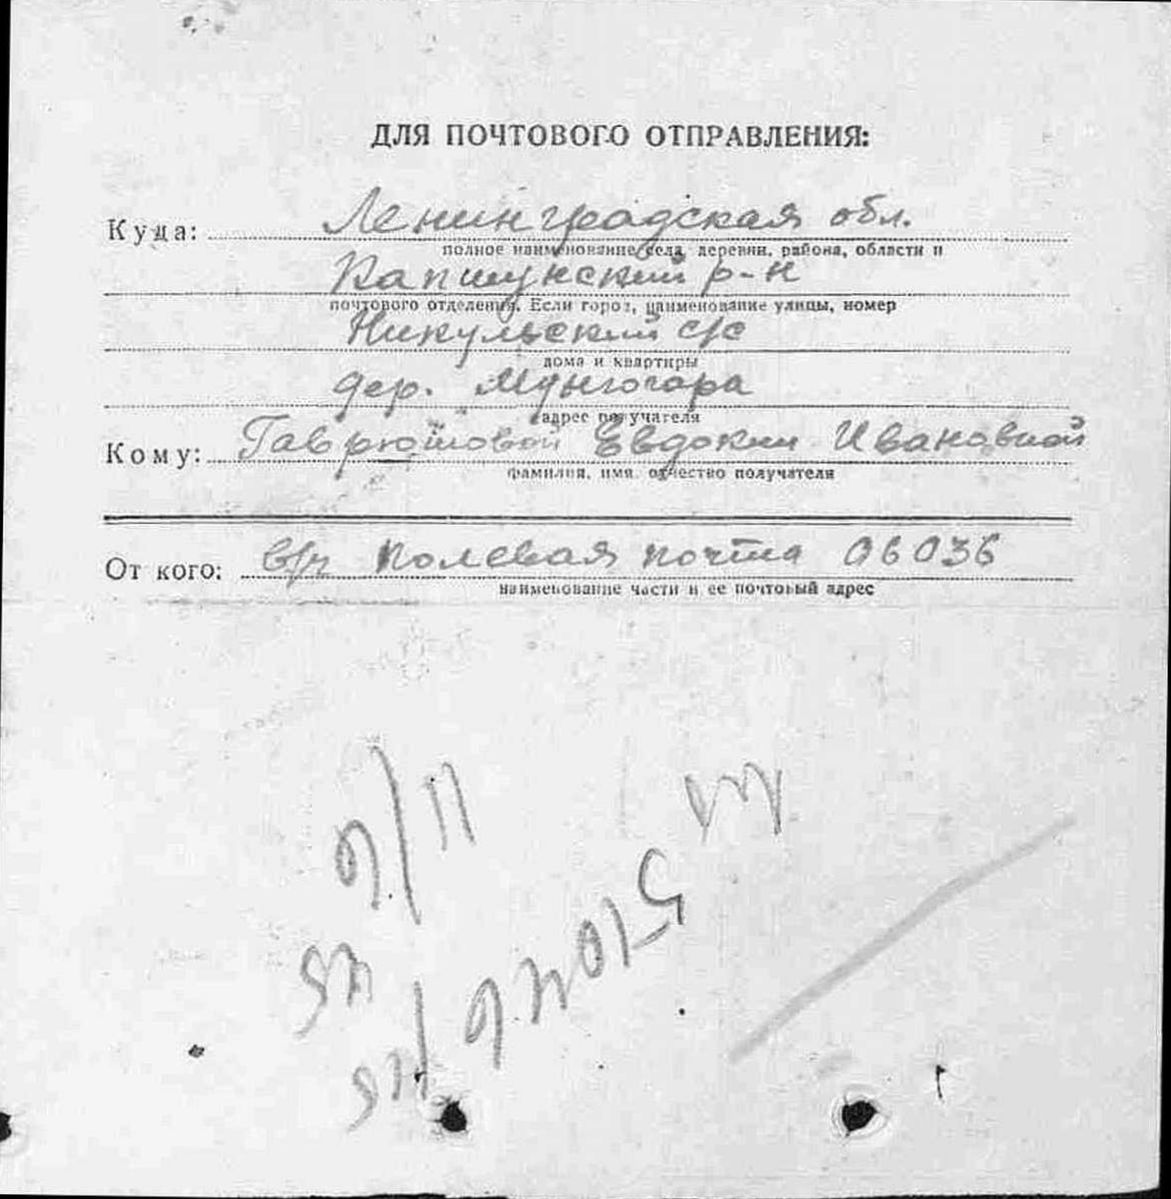 ДЛЯ ПОЧТОВОГО ОТПРАВЛЕНИЯ:
Куда: Ленинградская обл.
полное наименование села, деревни, района, области и
Капшинский р-н
почтового отделения. Если город, наименование улицы, номер
Никульский с/с
дома и квартиры
дер. Мунгогора
адрес получателя
Кому: Гаврютовой Евдокии Ивановной
фамилия, имя, отчество получателя
От кого: в/ч Полевая почта 06036
наименование части и ее почтовый адрес